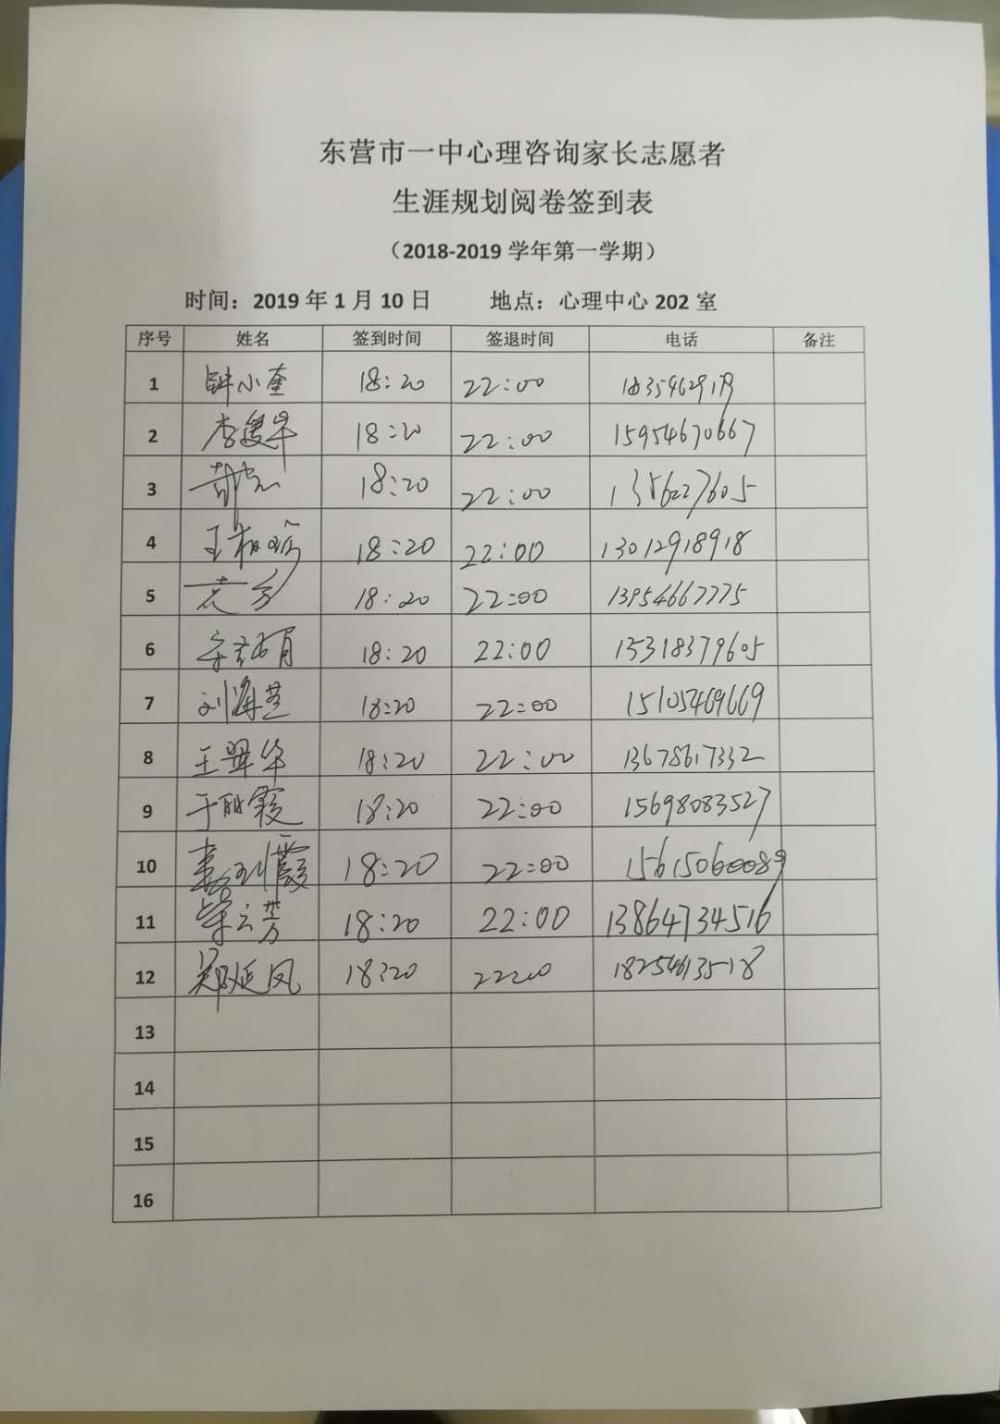 东营市一中心理咨询家长志愿者
生涯规划阅卷签到表
（2018-2019 学年第一学期）
时间：2019 年 1 月 10 日 地点：心理中心 202 室
序号 姓名 签到时间 签退时间 电话 备注
1 钟小奎 18:20 22:00
2 18:20 22:00 15954670667
3 18:20 22:00
4 18:20 22:00 13012918918
5 18:20 22:00 13954667775
6 18:20 22:00 13318379605
7 刘海芝 18:20 22:00 15105469669
8 王翠华 18:20 22:00 13678617332
9 18:20 22:00 15698083527
10 18:20 22:00 15615060089
11 荣云芳 18:20 22:00 13864734516
12 郑延凤 18:20 22:00 18254613518
13
14
15
16